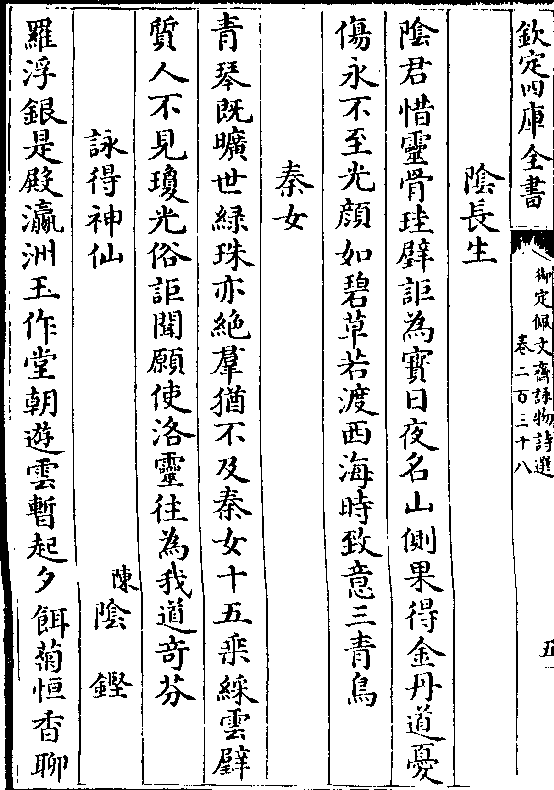 欽定四庫全書
御定佩文齋詠物詩選
卷二百三十八
五
陰長生
陰君惜靈骨珪璧詎為寶日夜名山側果得金丹道憂
傷永不至光顔如碧草若渡西海時致意三青鳥
秦女
青琴既曠世緑珠亦絶羣猶不及秦女十五乘綵雲璧
質人不見瓊光俗詎聞願使洛靈往為我道竒芬
詠得神仙
陳陰鏗
羅浮銀是殿瀛洲玉作堂朝遊雲暫起夕餌菊恒香聊